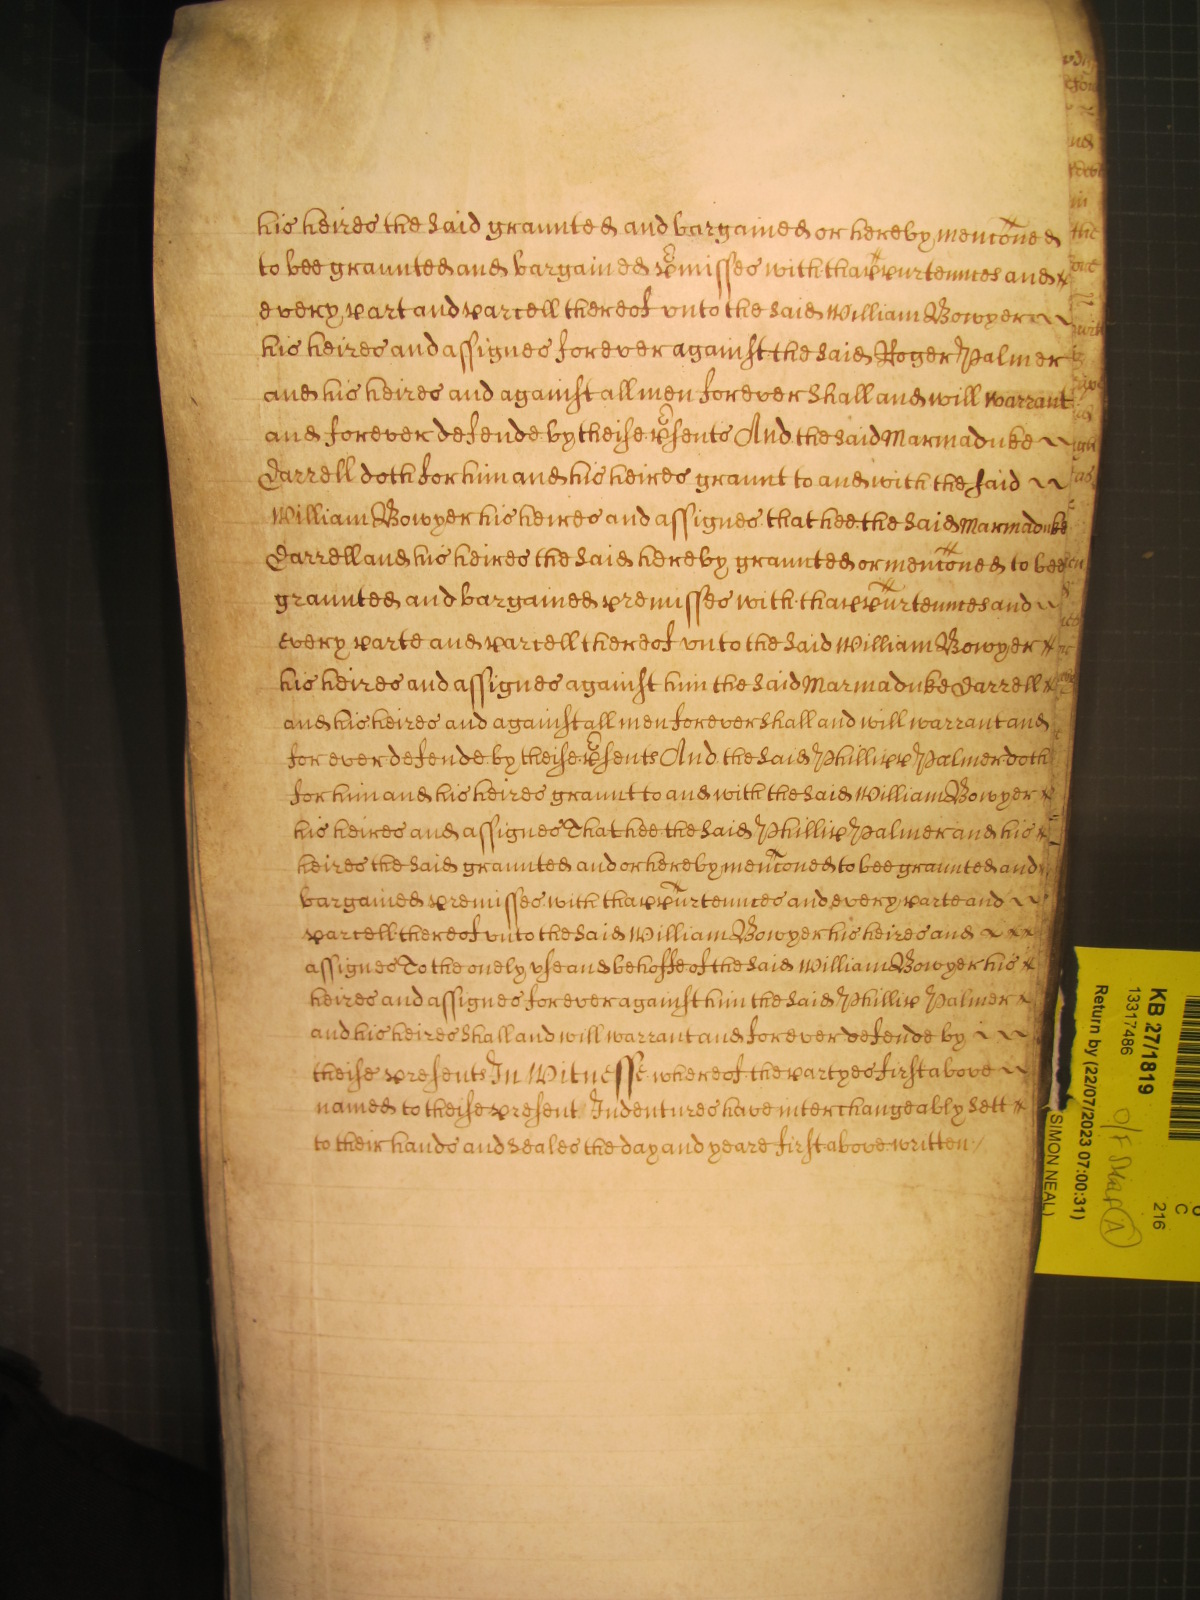 his heires the said graunted and bargained or hereby menconed
to bee graunted and bargained pmisses with thappurtennces and
every part and parcell thereof vnto the said William Bowyer
his heires and assignes forever against the said Roger Palmer
and his heires and against all men forever shall and will warrant
and forever defende by theise psents And the said Marmaduke
Darrell doth for him and his heires graunt to and with the said
William Bowyer his heires and assignes that hee the said Marmaduke
Darrell and his heires the said hereby graunted or menconed to bee
graunted and bargained premisses with thappurtennces and
every parte and parcell thereof vnto the said William Bowyer
his heires and assignes against him the said Marmaduke Darrell
and his heires and against all men forever shall and will warrant and
forever defende by theise psents And the said Phillipp Palmer doth
for him and his heires graunt to and with the said William Bowyer
his heires and assignes That hee the said Phillip Palmer and his
heires the said graunted and or hereby menconed to bee graunted and
bargained premisses with thappurtennces and every parte and
parcell thereof vnto the said William Bowyer his heires and
assignes To the onely vse and behoffe of the said William Bowyer his
heires and assignes forever against him the said Phillip Palmer
and his heires shall and will warrant and forever defende by
theise presents In Witnesse whereof the partyes first above
named to theise present Indentures have interchangeably sett
to their hands and seales the day and yeare first above written
KB 27/1819
13317486
Return by (22/07/2023 07:00:31)
SIMON NEAL)
216
C
A